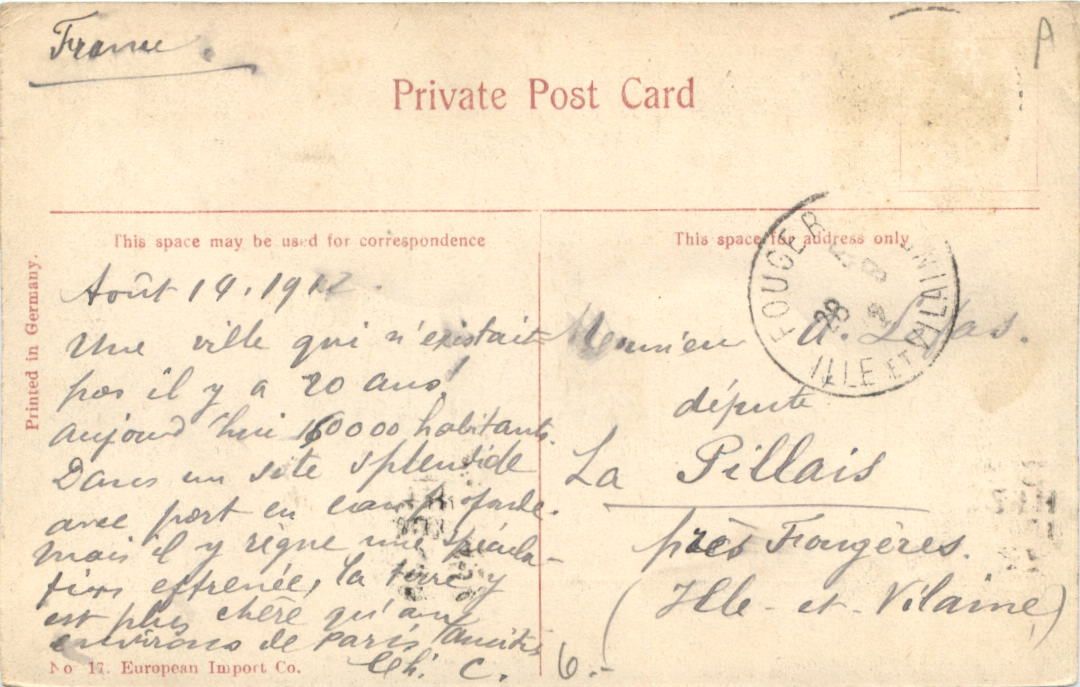 France.
A
Private Post Card
This space may be used for correspondence
This space for address only
Printed in Germany.
FOUGER
ILLE ET VILAINE
28
8
Août 14, 1912.
Une ville qui n'existait
pas il y a 20 ans!
aujourd'hui 160000 habitants.
Dans un site splendide
avec port en eau profde.
mais il y règne une spécula-
tion effrenée, la terre y
est plus chère qu'aux
environs de Paris amitiés
Ch. C.
Monsieur A.
député
La Pillais
près Fougères.
(Ille-et-Vilaine)
6.-
No 17. European Import Co.